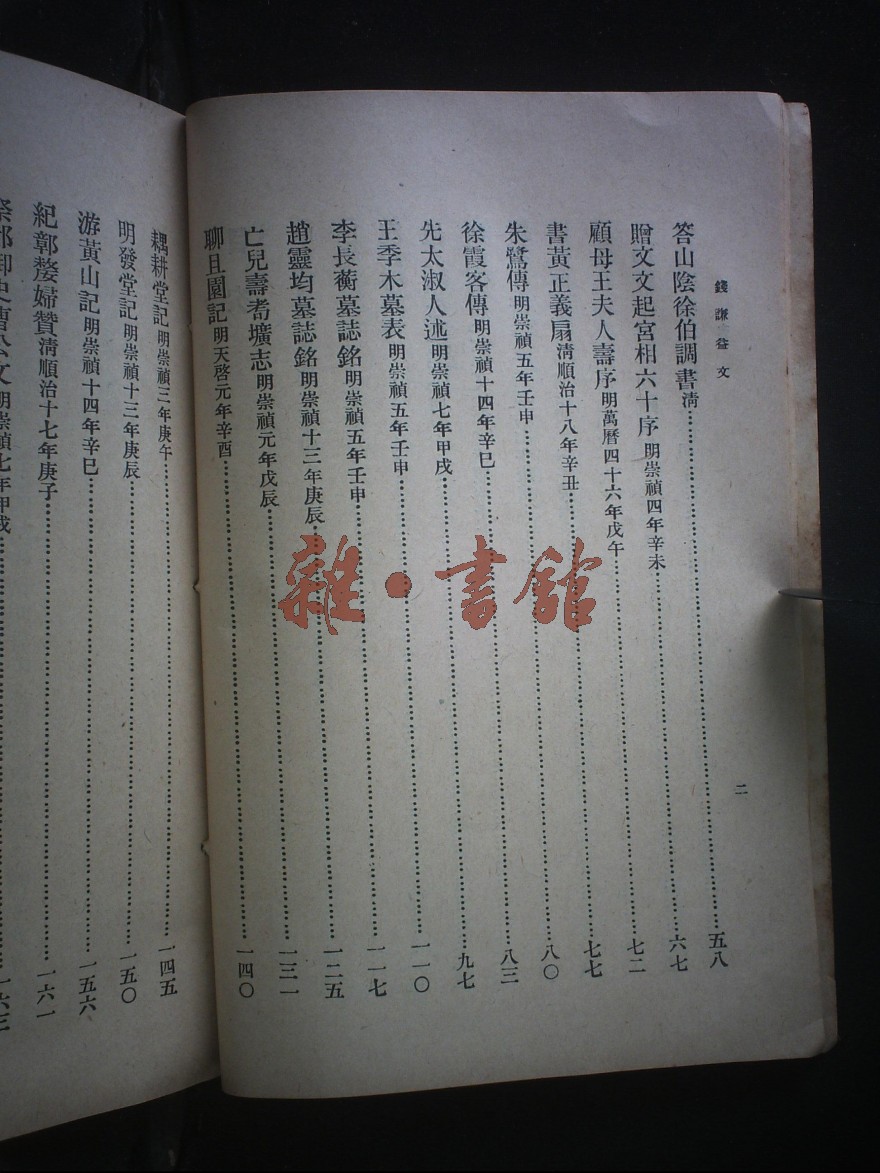 錢謙益文
二
答山陰徐伯調書 清……五八
贈文文起宮相六十序 明崇禎四年辛未……六七
顧母王夫人壽序 明萬曆四十六年戊午……七二
書黃正義扇 清順治十八年辛丑……七七
朱鷺傳 明崇禎五年壬申……八〇
徐霞客傳 明崇禎十四年辛巳……八三
先太淑人述 明崇禎七年甲戌……九七
王季木墓表 明崇禎五年壬申……一一〇
李長蘅墓誌銘 明崇禎五年壬申……一一七
趙靈均墓誌銘 明崇禎十三年庚辰……一二五
亡兒壽耇壙志 明崇禎元年戊辰……一三一
聊且園記 明天啓元年辛酉……一四〇
耦耕堂記 明崇禎三年庚午……一四五
明發堂記 明崇禎十三年庚辰……一五〇
游黃山記 明崇禎十四年辛巳……一五六
紀鄣嫠婦贊 清順治十七年庚子……一六一
御史曹公文 明崇禎七年甲戌……一六三
雜·書館